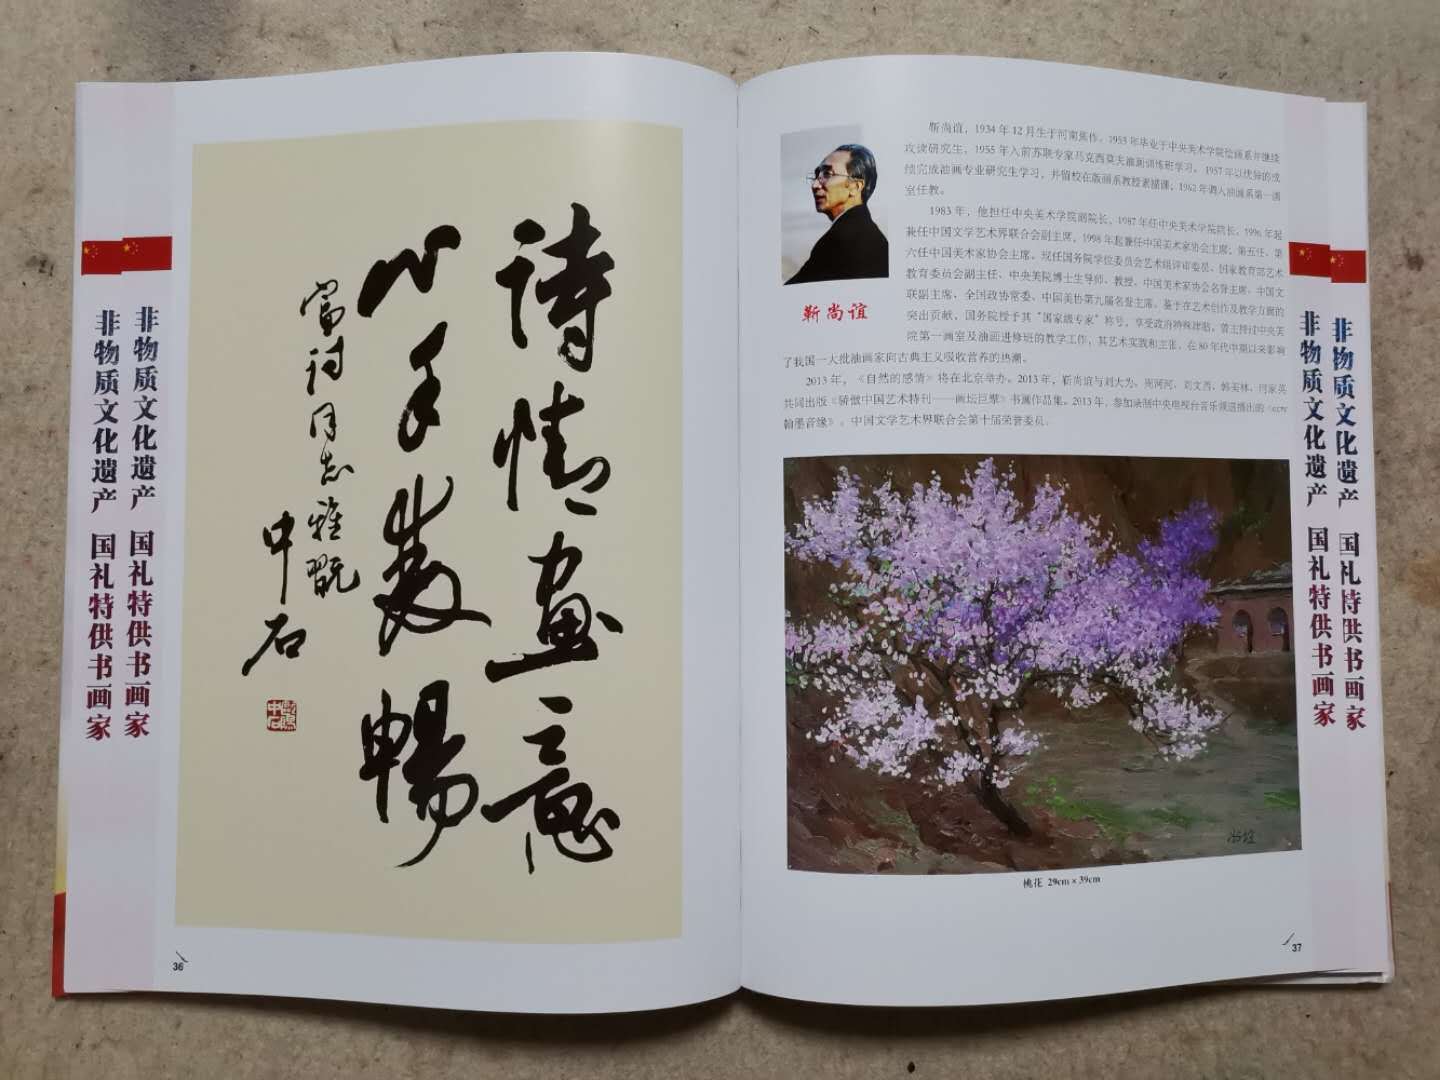 非物质文化遗产 国礼特供书画家
非物质文化遗产 国礼特供书画家
诗情画意
心手双畅
富诗同志雅翫
中石
36
靳尚谊，1934年12月生于河南焦作。1953年毕业于中央美术学院绘画系并继续
攻读研究生，1955年入前苏联专家马克西莫夫油画训练班学习。1957年以优异的成
绩完成油画专业研究生学习，并留校在版画系教授素描课；1962年调入油画系第一画
室任教。
1983年，他担任中央美术学院副院长，1987年任中央美术学院院长。1996年起
兼任中国文学艺术界联合会副主席，1998年起兼任中国美术家协会主席。第五任、第
六任中国美术家协会主席。现任国务院学位委员会艺术组评审委员、国家教育部艺术
教育委员会副主任、中央美院博士生导师、教授。中国美术家协会名誉主席、中国文
联副主席、全国政协常委、中国美协第九届名誉主席。鉴于在艺术创作及教学方面的
突出贡献，国务院授予其“国家级专家”称号，享受政府特殊津贴，曾主持过中央美
院第一画室及油画进修班的教学工作，其艺术实践和主张，在80年代中期以来影响
了我国一大批油画家向古典主义吸收营养的热潮。
2013年，《自然的感情》将在北京举办。2013年，靳尚谊与刘大为、刘文西、韩美林、何家英
共同出版《骄傲中国艺术特刊——画坛巨擘》书画作品集。2013年，参加录制中央电视台音乐频道播出的《cctv
翰墨音缘》。中国文学艺术界联合会第十届荣誉委员。
靳尚谊
尚谊
桃花 29cm×39cm
37
非物质文化遗产 国礼特供书画家
非物质文化遗产 国礼特供书画家